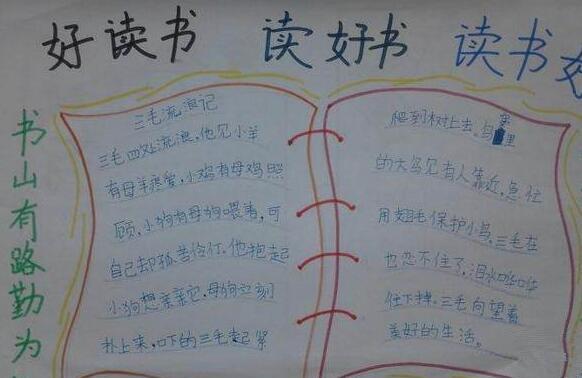 好读书 读好书 读书好
书山有路勤为
三毛流浪记
三毛四处流浪,他见小羊
有母羊疼爱,小鸡有母鸡照
顾,小狗有母狗喂养,可
自己却孤苦伶仃,他抱起
小狗想亲亲它,母狗立刻
扑上来,吓的三毛赶紧
爬到树上去。鸟巢里
的大鸟见有人靠近,急忙
用翅毛保护小鸟,三毛在
也忍不住了,泪水哗哗
往下掉,三毛向望着
美好的生活。